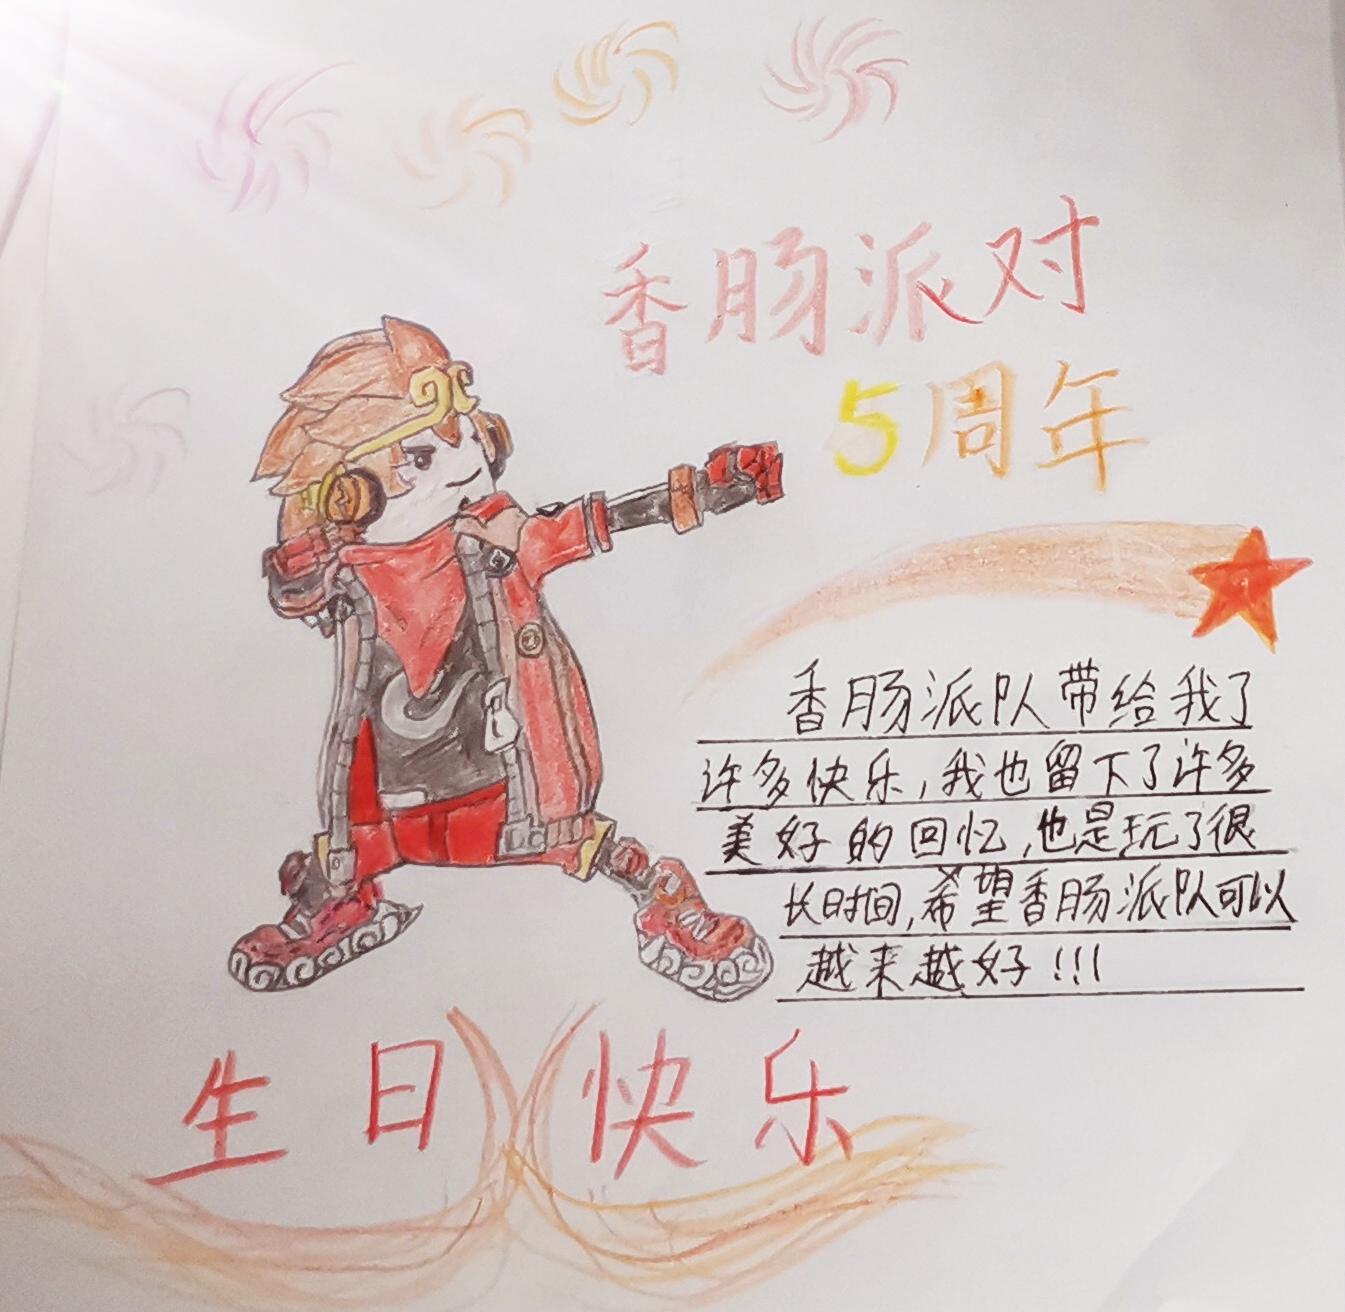 香肠派对
5周年
香肠派队带给我了
许多快乐,我也留下了许多
美好的回忆,也是玩了很
长时间,希望香肠派队可以
越来越好!!!
生日快乐